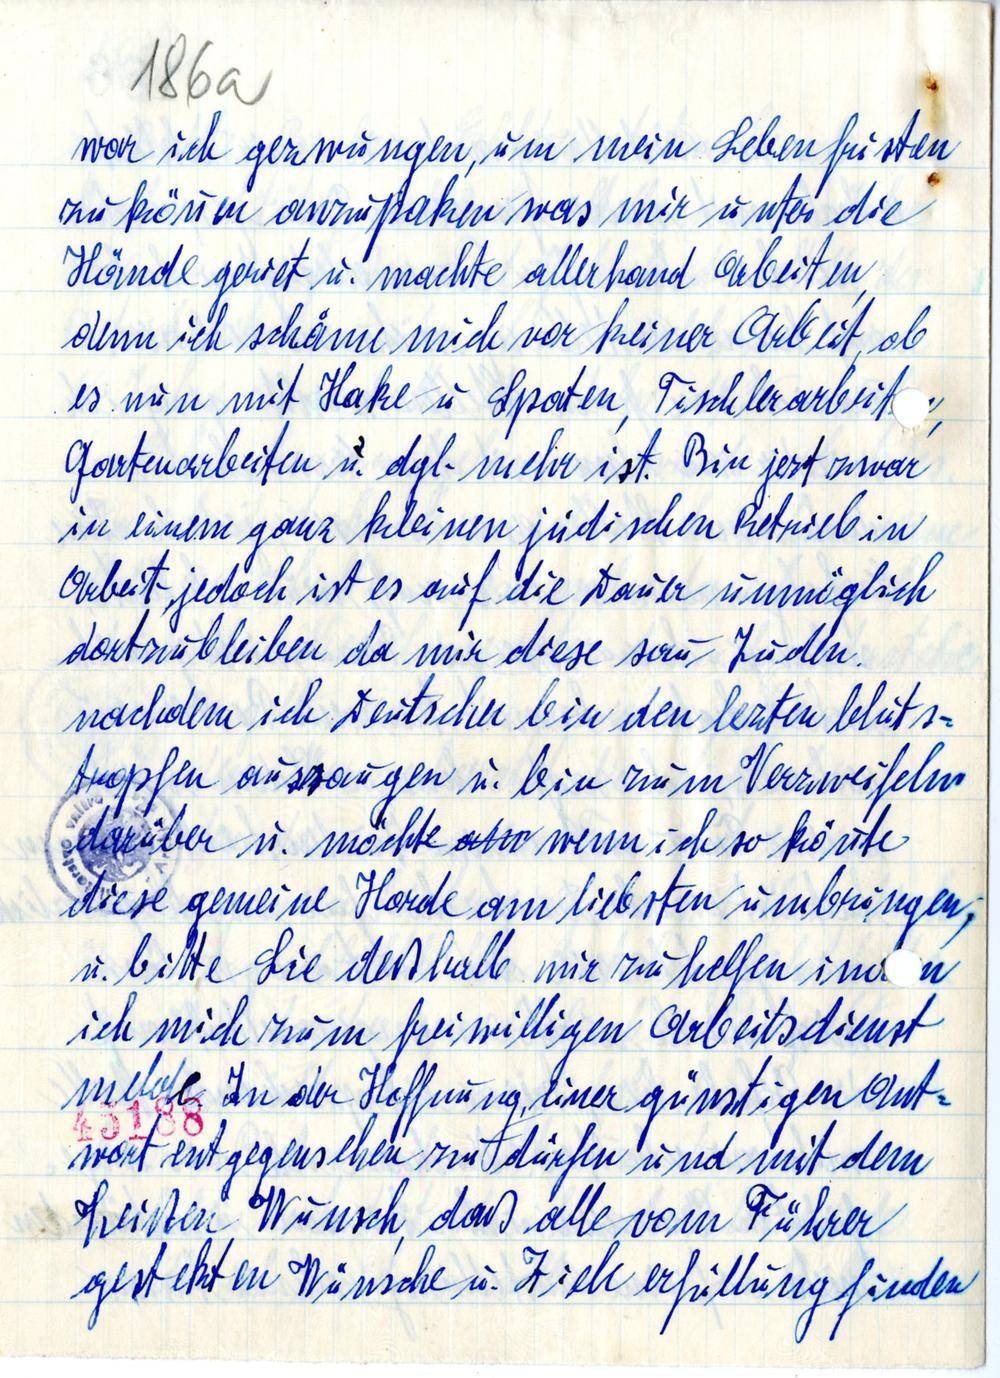 186a
war ich gezwungen, um mein Leben fristen
zu könen anzupaken was mir unter die
Hände geriet u. machte allerhand Arbeiten,
denn ich schäme mich vor keiner Arbeit, ob
es nun mit Hake u Spaten, Tischlerarbeit,
Gartenarbeiten u. dgl. mehr ist. Bin jezt zwar
in einem ganz kleinen jüdischen Betrieb in
Arbeit, jedoch ist es auf die Dauer unmöglich
dortzubleiben da mir diese sau Juden.
nachdem ich Deutscher bin den lezten bluts=
tropfen aussaugen u. bin zum Verzweifeln
darüber u. möchte wenn ich so könte
diese gemeine Horde am liebsten umbringen,
u. bitte Sie deßhalb mir zu helfen
ich mich zum freiwilligen Arbeitsdienst
melde. In der Hoffnung, einer günstigen Ant=
45188
wort entgegensehen zu dürfen und mit dem
heißen Wunsch, daß alle vom Führer
gestekten Wünsche u. Ziele erfüllung finden